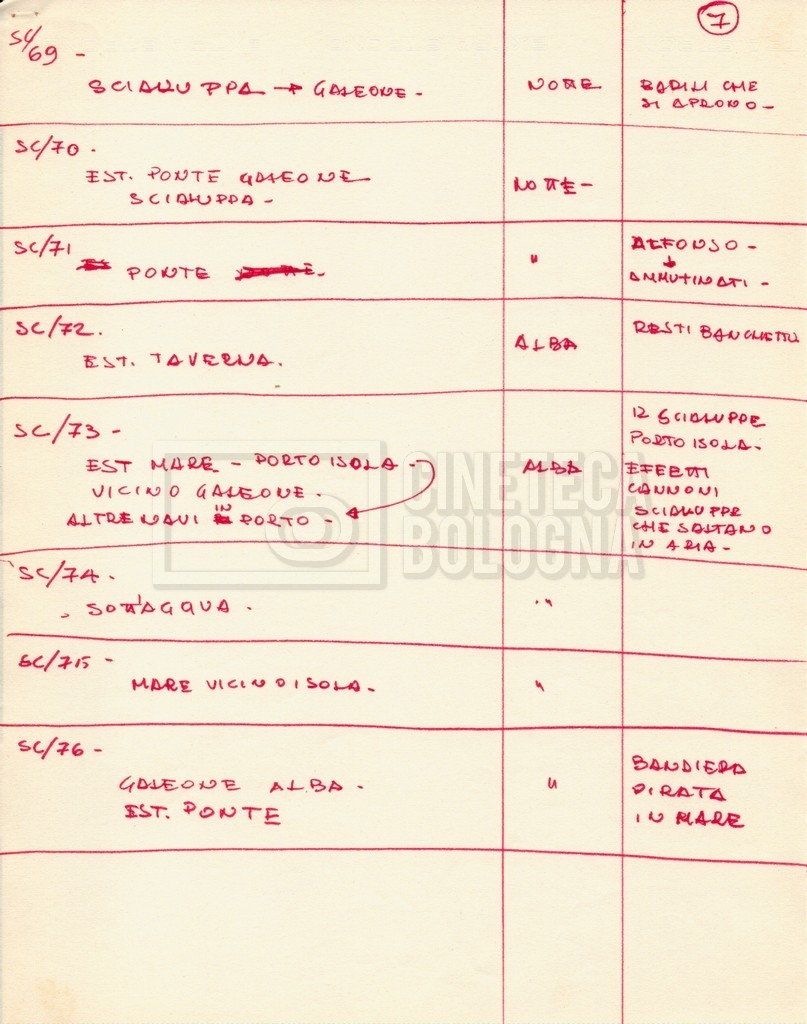 7
SC/69 -
SCIALUPPA → GALEONE - NOTTE BARILI CHE
SI APRONO -
SC/70 -
EST. PONTE GALEONE
SCIALUPPA - NOTTE -
SC/71
PONTE - " ALFONSO -
↓
AMMUTINATI -
SC/72.
EST. TAVERNA. ALBA RESTI BANCHETTO
SC/73 -
EST MARE - PORTO ISOLA -
VICINO GALEONE -
ALTRE NAVI IN PORTO -
ALBA
12 SCIALUPPE
PORTO ISOLA -
EFFETTI
CANNONI
SCIALUPPE
CHE SALTANO
IN ARIA -
SC/74 -
SOTT'ACQUA - "
SC/75 -
MARE VICINO ISOLA - "
SC/76 -
GALEONE ALBA -
EST. PONTE
"
BANDIERA
PIRATA
IN MARE
CINETECA
BOLOGNA